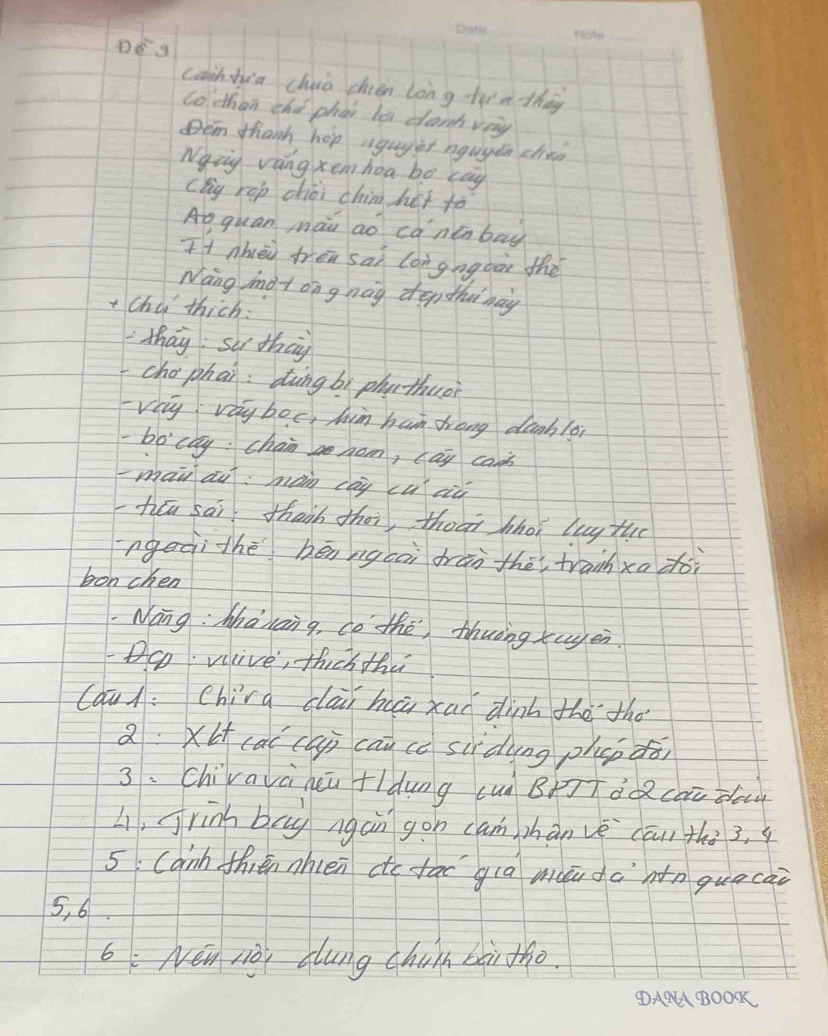 Date Note
Đề 3
Cảnh tựa chùa chiền lòng tựa thầy
Có thân chớ phải lợi danh vây
Đêm thanh hớp nguyệt nguyên chén
Ngày vắng xem hoa bợ cây
Cây rợp chồi chim kết tổ
Ao quan mấu ao cá nên bầy
Ít nhiều tiên sai lòng ngoài thế
Năng một ông này đẹp thú này
+ Chú thích:
- thầy: sư thầy
- chớ phải: đừng bị phụ thuộc
- vây: vây bọc, kìm hãm trong danh lợi
- bợ cây: chăm nom, cây cảnh
- mấu ấu: mầm cây củ ấu
- tiêu sái: thảnh thơi, thoát khỏi lụy tục
- ngoài thế: bên ngoài trần thế, tránh xa đời
bon chen
- Năng: khả năng, có thể, thường xuyên.
- Đẹp: vui vẻ, thích thú.
Câu 1: Chỉ ra dấu hiệu xác định thể thơ
2: Xđ các cặp câu có sử dụng phép đối
3: Chỉ ra và nêu t/dụng của BPTT ở 2 câu đầu
4, Trình bày ngắn gọn cảm nhận về câu thơ 3,4
5: Cảnh thiên nhiên đc tác giả miêu tả ntn qua câu
5,6.
6: Nêu nội dung chính bài thơ.
DANA BOOK